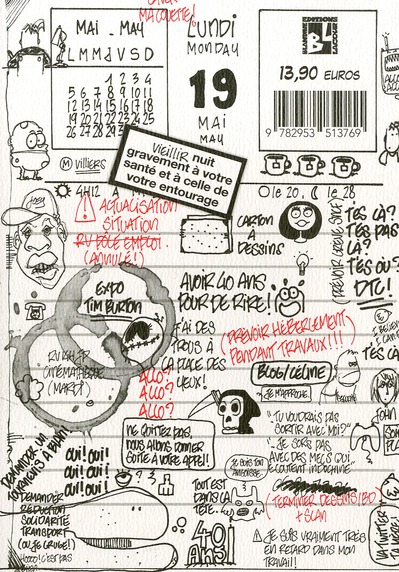 MA COUETTE!
MAI - MAY
L M M J V S D
1 2 3 4
5 6 7 8 9 10 11
12 13 14 15 16 17 18
19 20 21 22 23 24 25
26 27 28 29 30 31
M VILLIERS
LUNDI
MONDAY
19
MAI
MAY
EDITIONS
13,90 EUROS
9 782953 513769
VIEILLIR nuit
gravement à votre
santé et à celle de
votre entourage
4H12
LE 20,
LE 28
ACTUALISATION
SITUATION
RV POLE EMPLOI
(ANNULÉ!)
CARTON
À
DESSINS
T'ES LÀ?
T'ES PAS
LÀ?
T'ES OÙ?
DTC!
EXPO
TIM BURTON
AVOIR 40 ANS
POUR DE RIRE!
J'AI DES
TROUS À
LA PLACE DES
YEUX!
(PRÉVOIR HÉBERGEMENT
PENDANT TRAVAUX!!!)
CINÉMATHÈQUE
(MARDI)
ALLO?
ALLO?
ALLO?
BLOG/CÉLINE
JE M'APPROCHE
T'ES
NE QUITTEZ PAS,
NOUS ALLONS DONNER
SUITE À VOTRE APPEL!
"TU VOUDRAIS PAS
SORTIR AVEC MOI?"
"JE SORS PAS
AVEC DES MECS QUI
ÉCOUTENT INDOCHINE"
JE SUIS TON
OUI! OUI!
OUI! OUI!
OUI! OUI!
TOUT EST
DANS LA
TÊTE.
(TERMINER DESSINS/BD
+ SCAN
DEMANDER
RÉDUCTION
SOLIDARITÉ
TRANSPORT
(OU JE GRUGE!)
40
ANS!
JE SUIS VRAIMENT TRÈS
EN RETARD DANS MON
TRAVAIL!